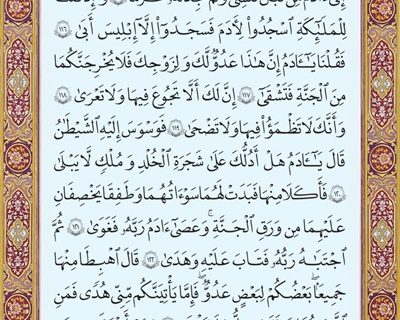 لِلْمَلَٰٓئِكَةِ ٱسْجُدُوا۟ لِءَادَمَ فَسَجَدُوٓا۟ إِلَّآ إِبْلِيسَ أَبَىٰ ١١٦
فَقُلْنَا يَٰٓـَٔادَمُ إِنَّ هَٰذَا عَدُوٌّ لَّكَ وَلِزَوْجِكَ فَلَا يُخْرِجَنَّكُمَا
مِنَ ٱلْجَنَّةِ فَتَشْقَىٰٓ ١١٧ إِنَّ لَكَ أَلَّا تَجُوعَ فِيهَا وَلَا تَعْرَىٰ ١١٨
وَأَنَّكَ لَا تَظْمَؤُا۟ فِيهَا وَلَا تَضْحَىٰ ١١٩ فَوَسْوَسَ إِلَيْهِ ٱلشَّيْطَٰنُ
قَالَ يَٰٓـَٔادَمُ هَلْ أَدُلُّكَ عَلَىٰ شَجَرَةِ ٱلْخُلْدِ وَمُلْكٍ لَّا يَبْلَىٰ
١٢٠ فَأَكَلَا مِنْهَا فَبَدَتْ لَهُمَا سَوْءَٰتُهُمَا وَطَفِقَا يَخْصِفَانِ
عَلَيْهِمَا مِن وَرَقِ ٱلْجَنَّةِ ۚ وَعَصَىٰٓ ءَادَمُ رَبَّهُۥ فَغَوَىٰ ١٢١ ثُمَّ
ٱجْتَبَٰهُ رَبُّهُۥ فَتَابَ عَلَيْهِ وَهَدَىٰ ١٢٢ قَالَ ٱهْبِطَا مِنْهَا
جَمِيعًۢا ۖ بَعْضُكُمْ لِبَعْضٍ عَدُوٌّ ۖ فَإِمَّا يَأْتِيَنَّكُم مِّنِّى هُدًى فَمَنِ